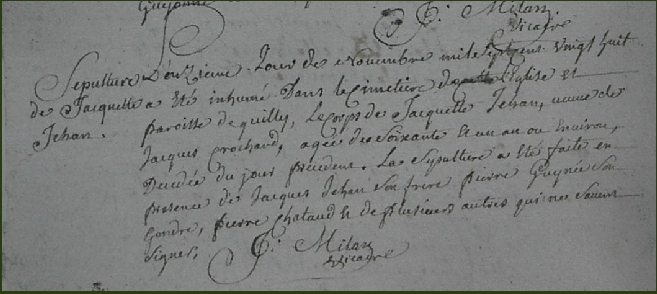 Guyonne
P: Milan
Vicaire
Sepulture L'onzieme Jour de Novembre mil sept cent vingt huit
de Jacquette a Eté inhumé Dans le Cimetiere de L'Eglise et
Jehan. paroisse de quilly, Le corps de Jacquette Jehan, veuve de
Jacques crochard, agée de soixante et un an ou environ,
Decedée du jour precedent. La Sepulture a Eté faite en
presence de Jacques Jehan son frere, pierre Guynée son
Gendre, pierre chataud & de plusieurs autres qui ne savent
signer,
P: Milan
Vicaire